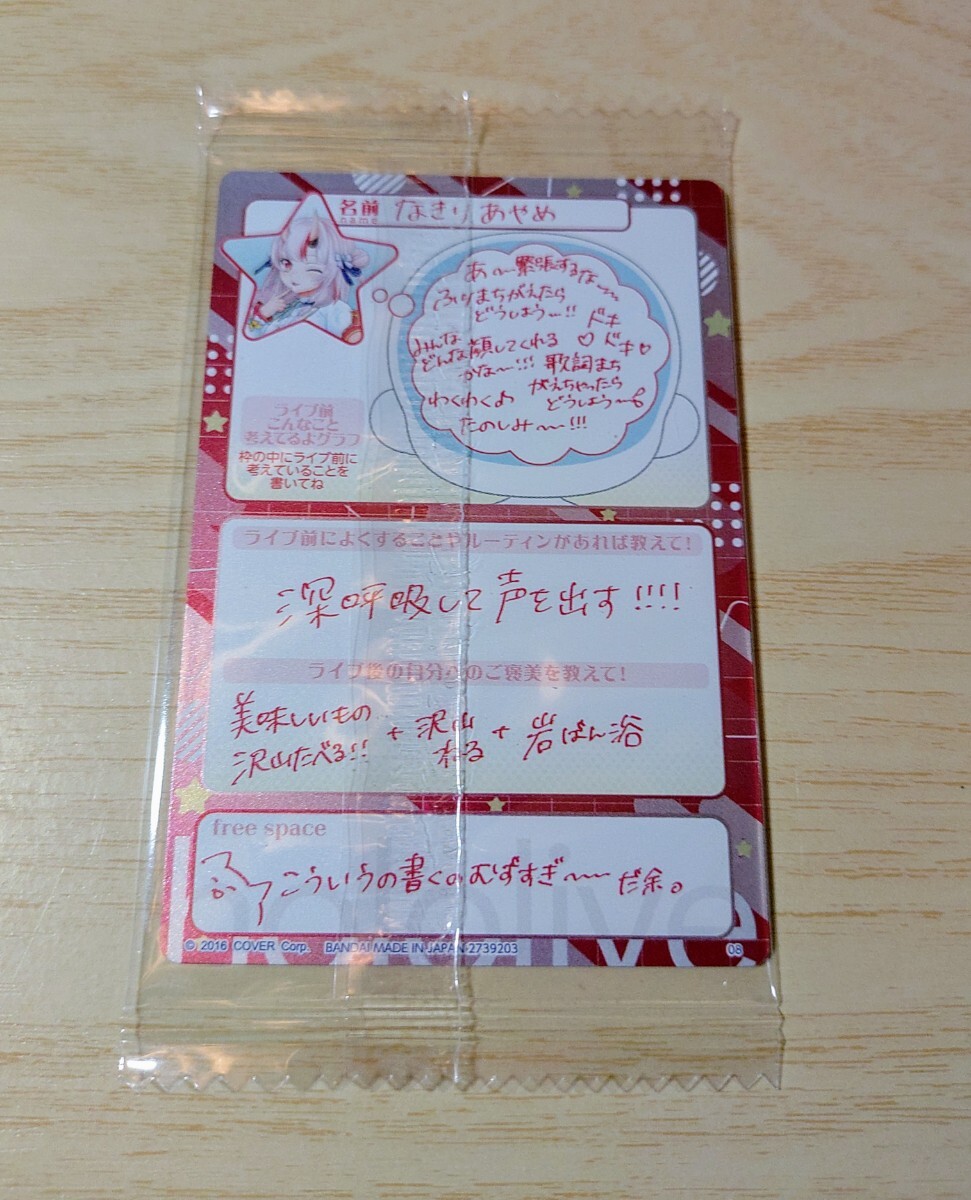 名前
name
なきりあやめ
あ〜緊張するな〜
ふりまちがえたら
どうしよう〜!!
ドキ
♡ドキ♡
みんな
どんな顔してくれる
かな〜!!!
歌詞まち
がえちゃったら
どうしよう〜
わくわくよ
たのしみ〜!!!
ライブ前
こんなこと
考えてるよグラフ
枠の中にライブ前に
考えていることを
書いてね
ライブ前によくすることやルーティンがあれば教えて!
深呼吸して声を出す!!!!
ライブ後の自分へのご褒美を教えて!
美味しいもの
沢山たべる!!
+ 沢山
ねる
+ 岩ばん浴
free space
こういうの書くのむずすぎ〜〜だ余。
hololive
© 2016 COVER Corp. BANDAI MADE IN JAPAN 2739203
08